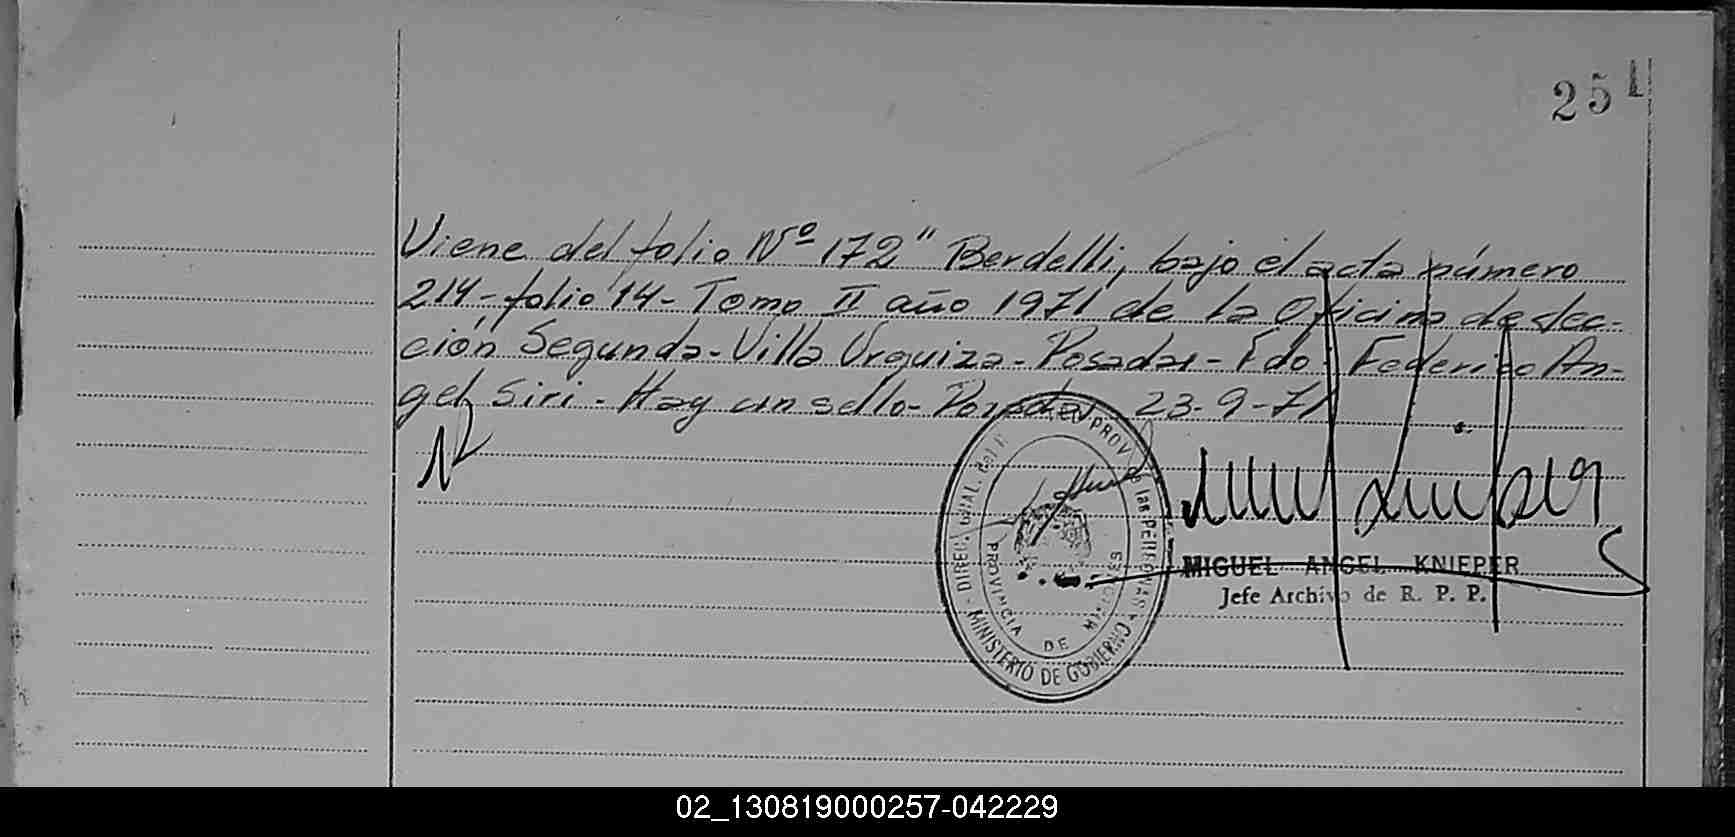 251
Viene del folio Nº 172" Berdelli, bajo el acta número
214 - folio 14 - Tomo II año 1971 de la Oficina de Sec-
ción Segunda - Villa Urquiza - Posadas - Fdo: Federico An-
gel Siri - Hay un sello - Posadas, 23-9-71
MINISTERIO DE GOBIERNO
PROVINCIA DE MISIONES
MIGUEL ANGEL KNIEPER
Jefe Archivo de R. P. P.
02_130819000257-042229